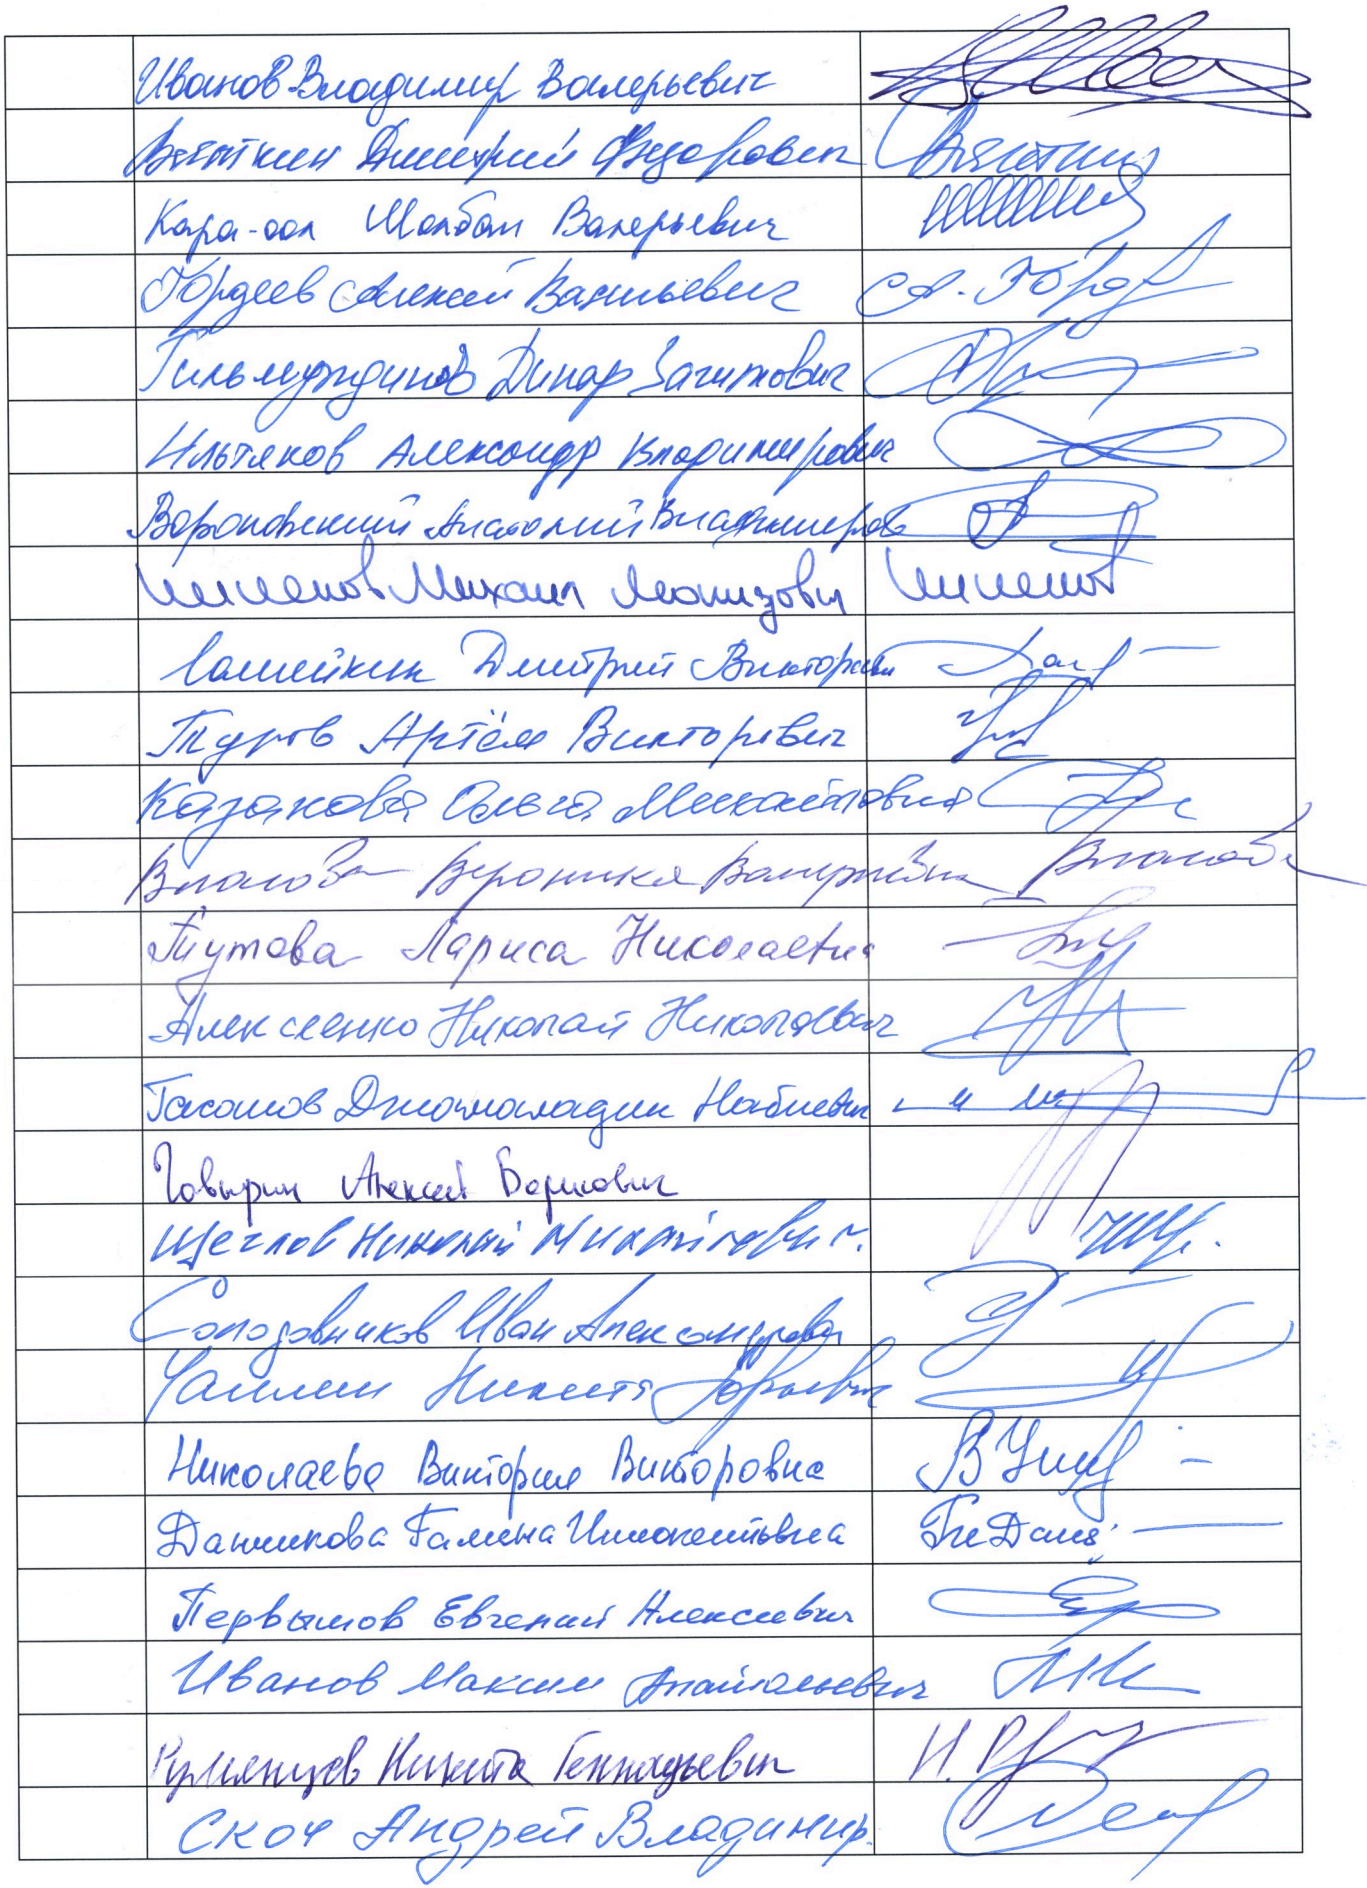 Иванов Владимир Валерьевич
Вяткин Дмитрий Федорович Вяткин
Кара-оол Шолбан Валерьевич
Гордеев Алексей Васильевич А. Горд
Гильмутдинов Динар Загитович
Ильтяков Александр Владимирович
Вороновский Анатолий Владимиров
Шименов Михаил Леонидович
Ламейкин Дмитрий Викторович
Туров Артём Викторович
Казакова Ольга Михайловна
Власова Вероника Валерьевна Власова
Тутова Лариса Николаевна
Алексеенко Николай Николаевич
Гасанов Джамаладин Набиевич
Говырин Алексей Борисович
Щеглов Николай Михайлович.
Солодовников Иван Александрович
Чаплин Никита Юрьевич
Николаева Виктория Викторовна
Данчикова Галина Иннокентьевна
Первышов Евгений Алексеевич
Иванов Максим Анатольевич
Румянцев Никита Геннадьевич
Скоч Андрей Владимир.